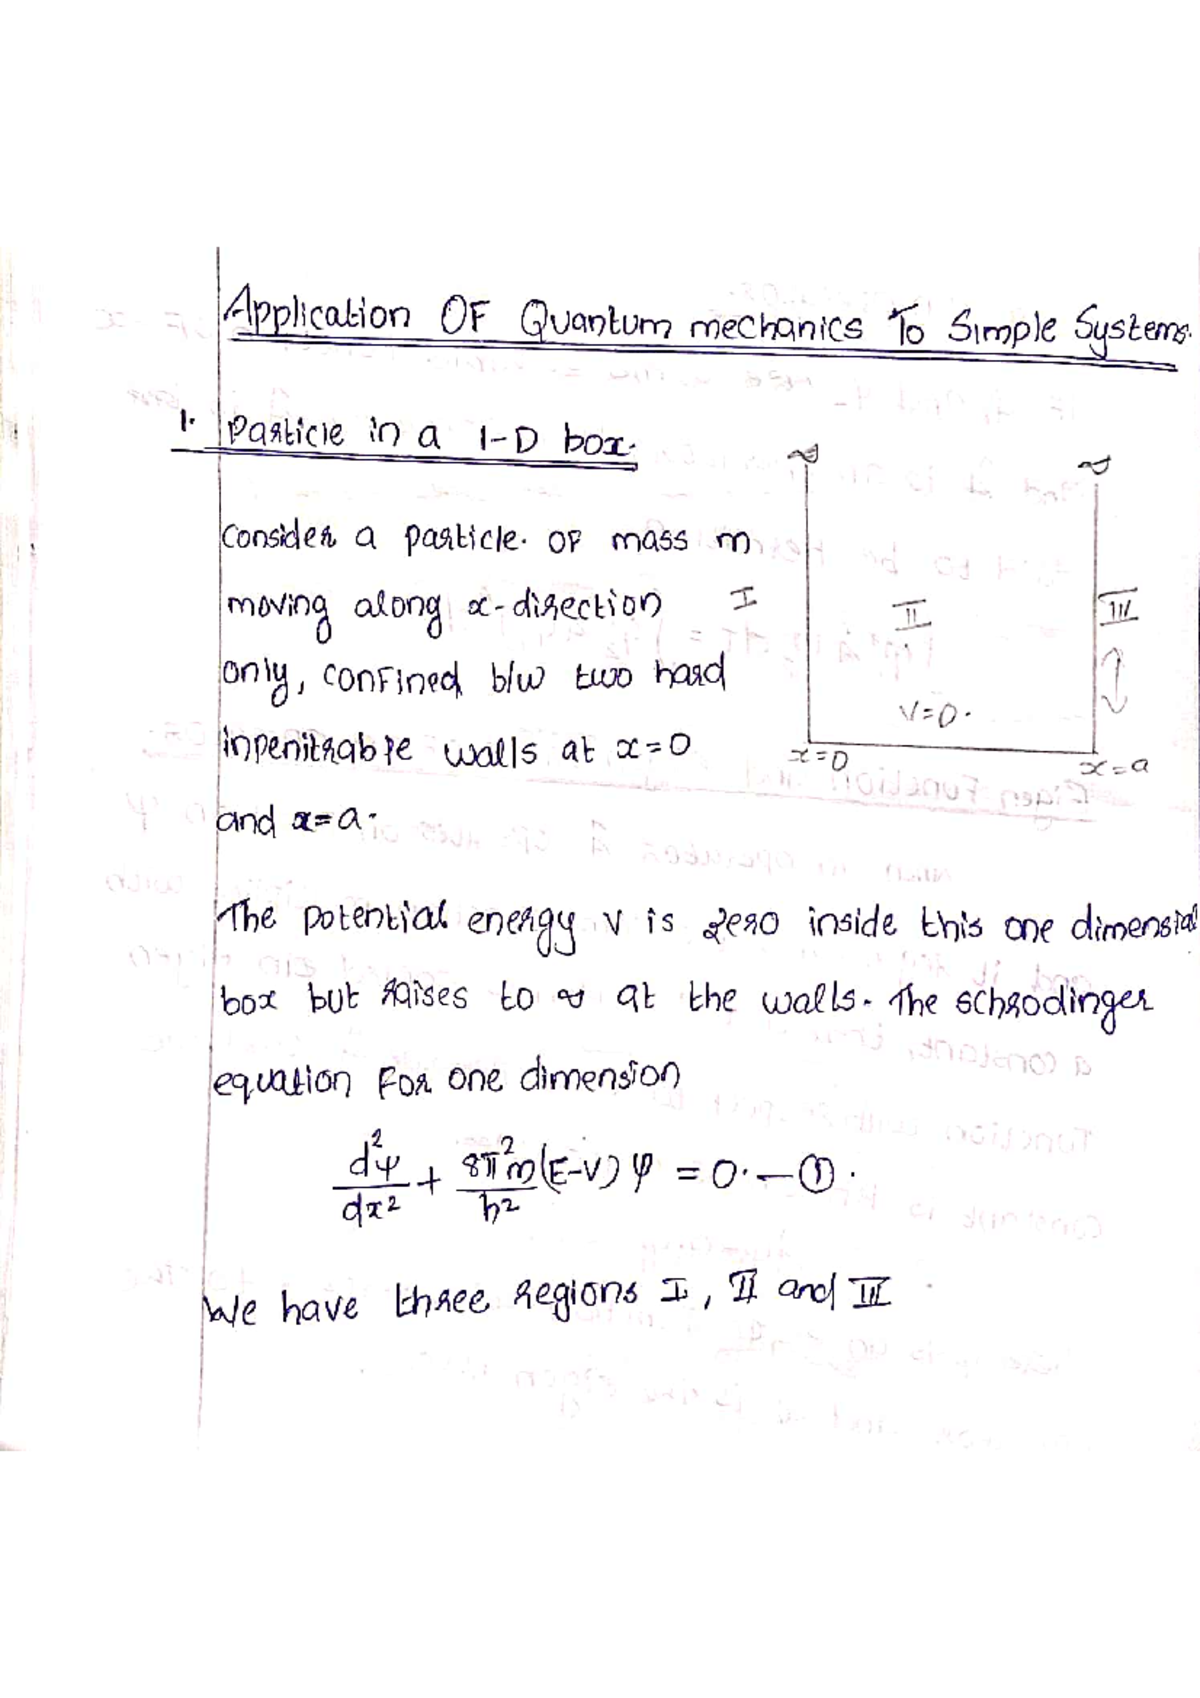 Application OF Quantum mechanics To Simple Systems.
1. Particle in a 1-D box.
Consider a particle. OF mass m
moving along x-direction
only, confined b/w two hard
inpenitrable walls at x=0
and x=a.
∞ ∞
I II III
V=0.
x=0 x=a
The potential energy V is zero inside this one dimensial
box but raises to ∞ at the walls. The schrodinger
equation For one dimension
d²ψ/dx² + 8π²m/h² (E-V) ψ = 0. — ① .
We have three regions I, II and III